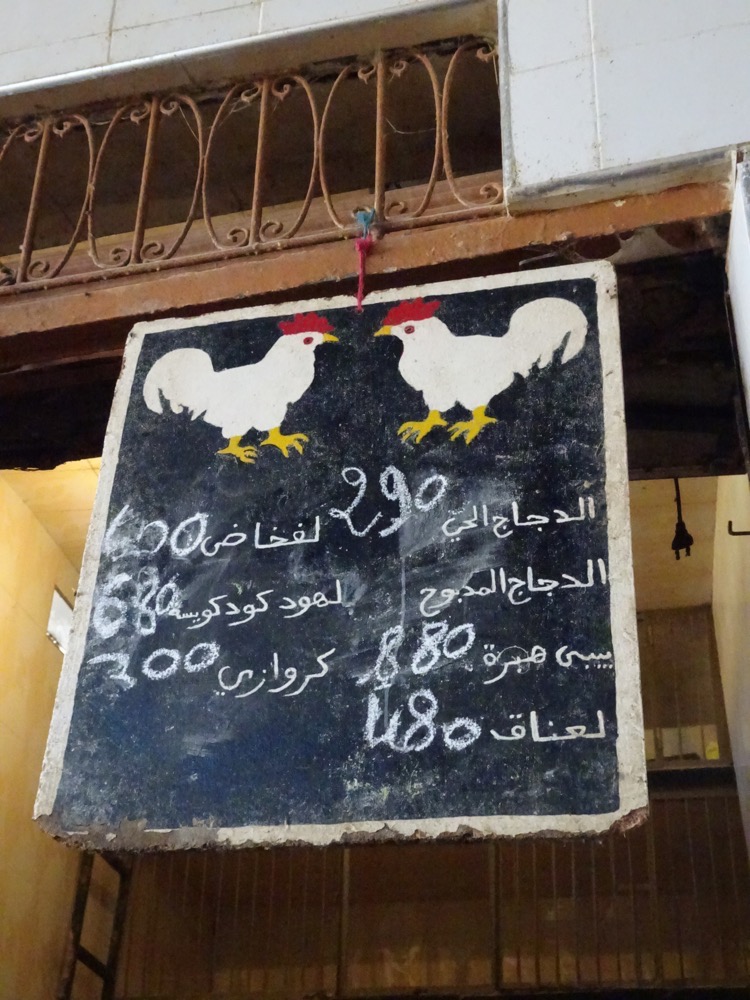 الدجاج الحي 290
الدجاج المدبوح
بيبي هبرة 880
لعناق 480
لفخاض 400
لهود كودكويسة 680
كروازي 200